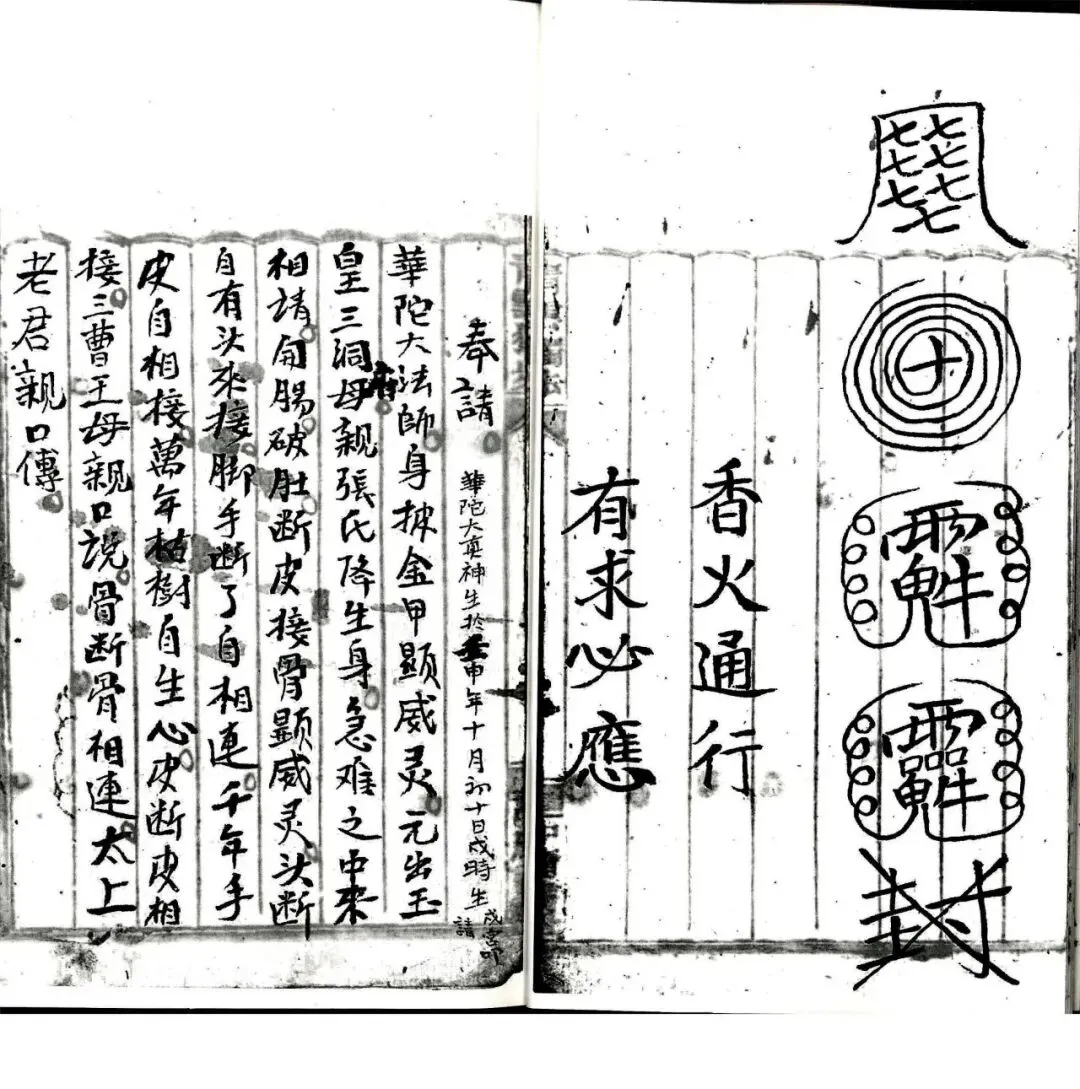 七七七七七七七
十
封
香火通行
有求必應
奉請
華陀大真神生於壬申年十月初十日戌時生
請
華陀大法師身披金甲顕威灵元出玉
皇三洞府母親張氏降生身急难之中來
相請開腸破肚断皮接骨顕威灵头断
自有头來接脚手断了自相連千年手
皮自相接萬年枯樹自生心皮断皮相
接三曹王母親口說骨断骨相連太上
老君親口傳